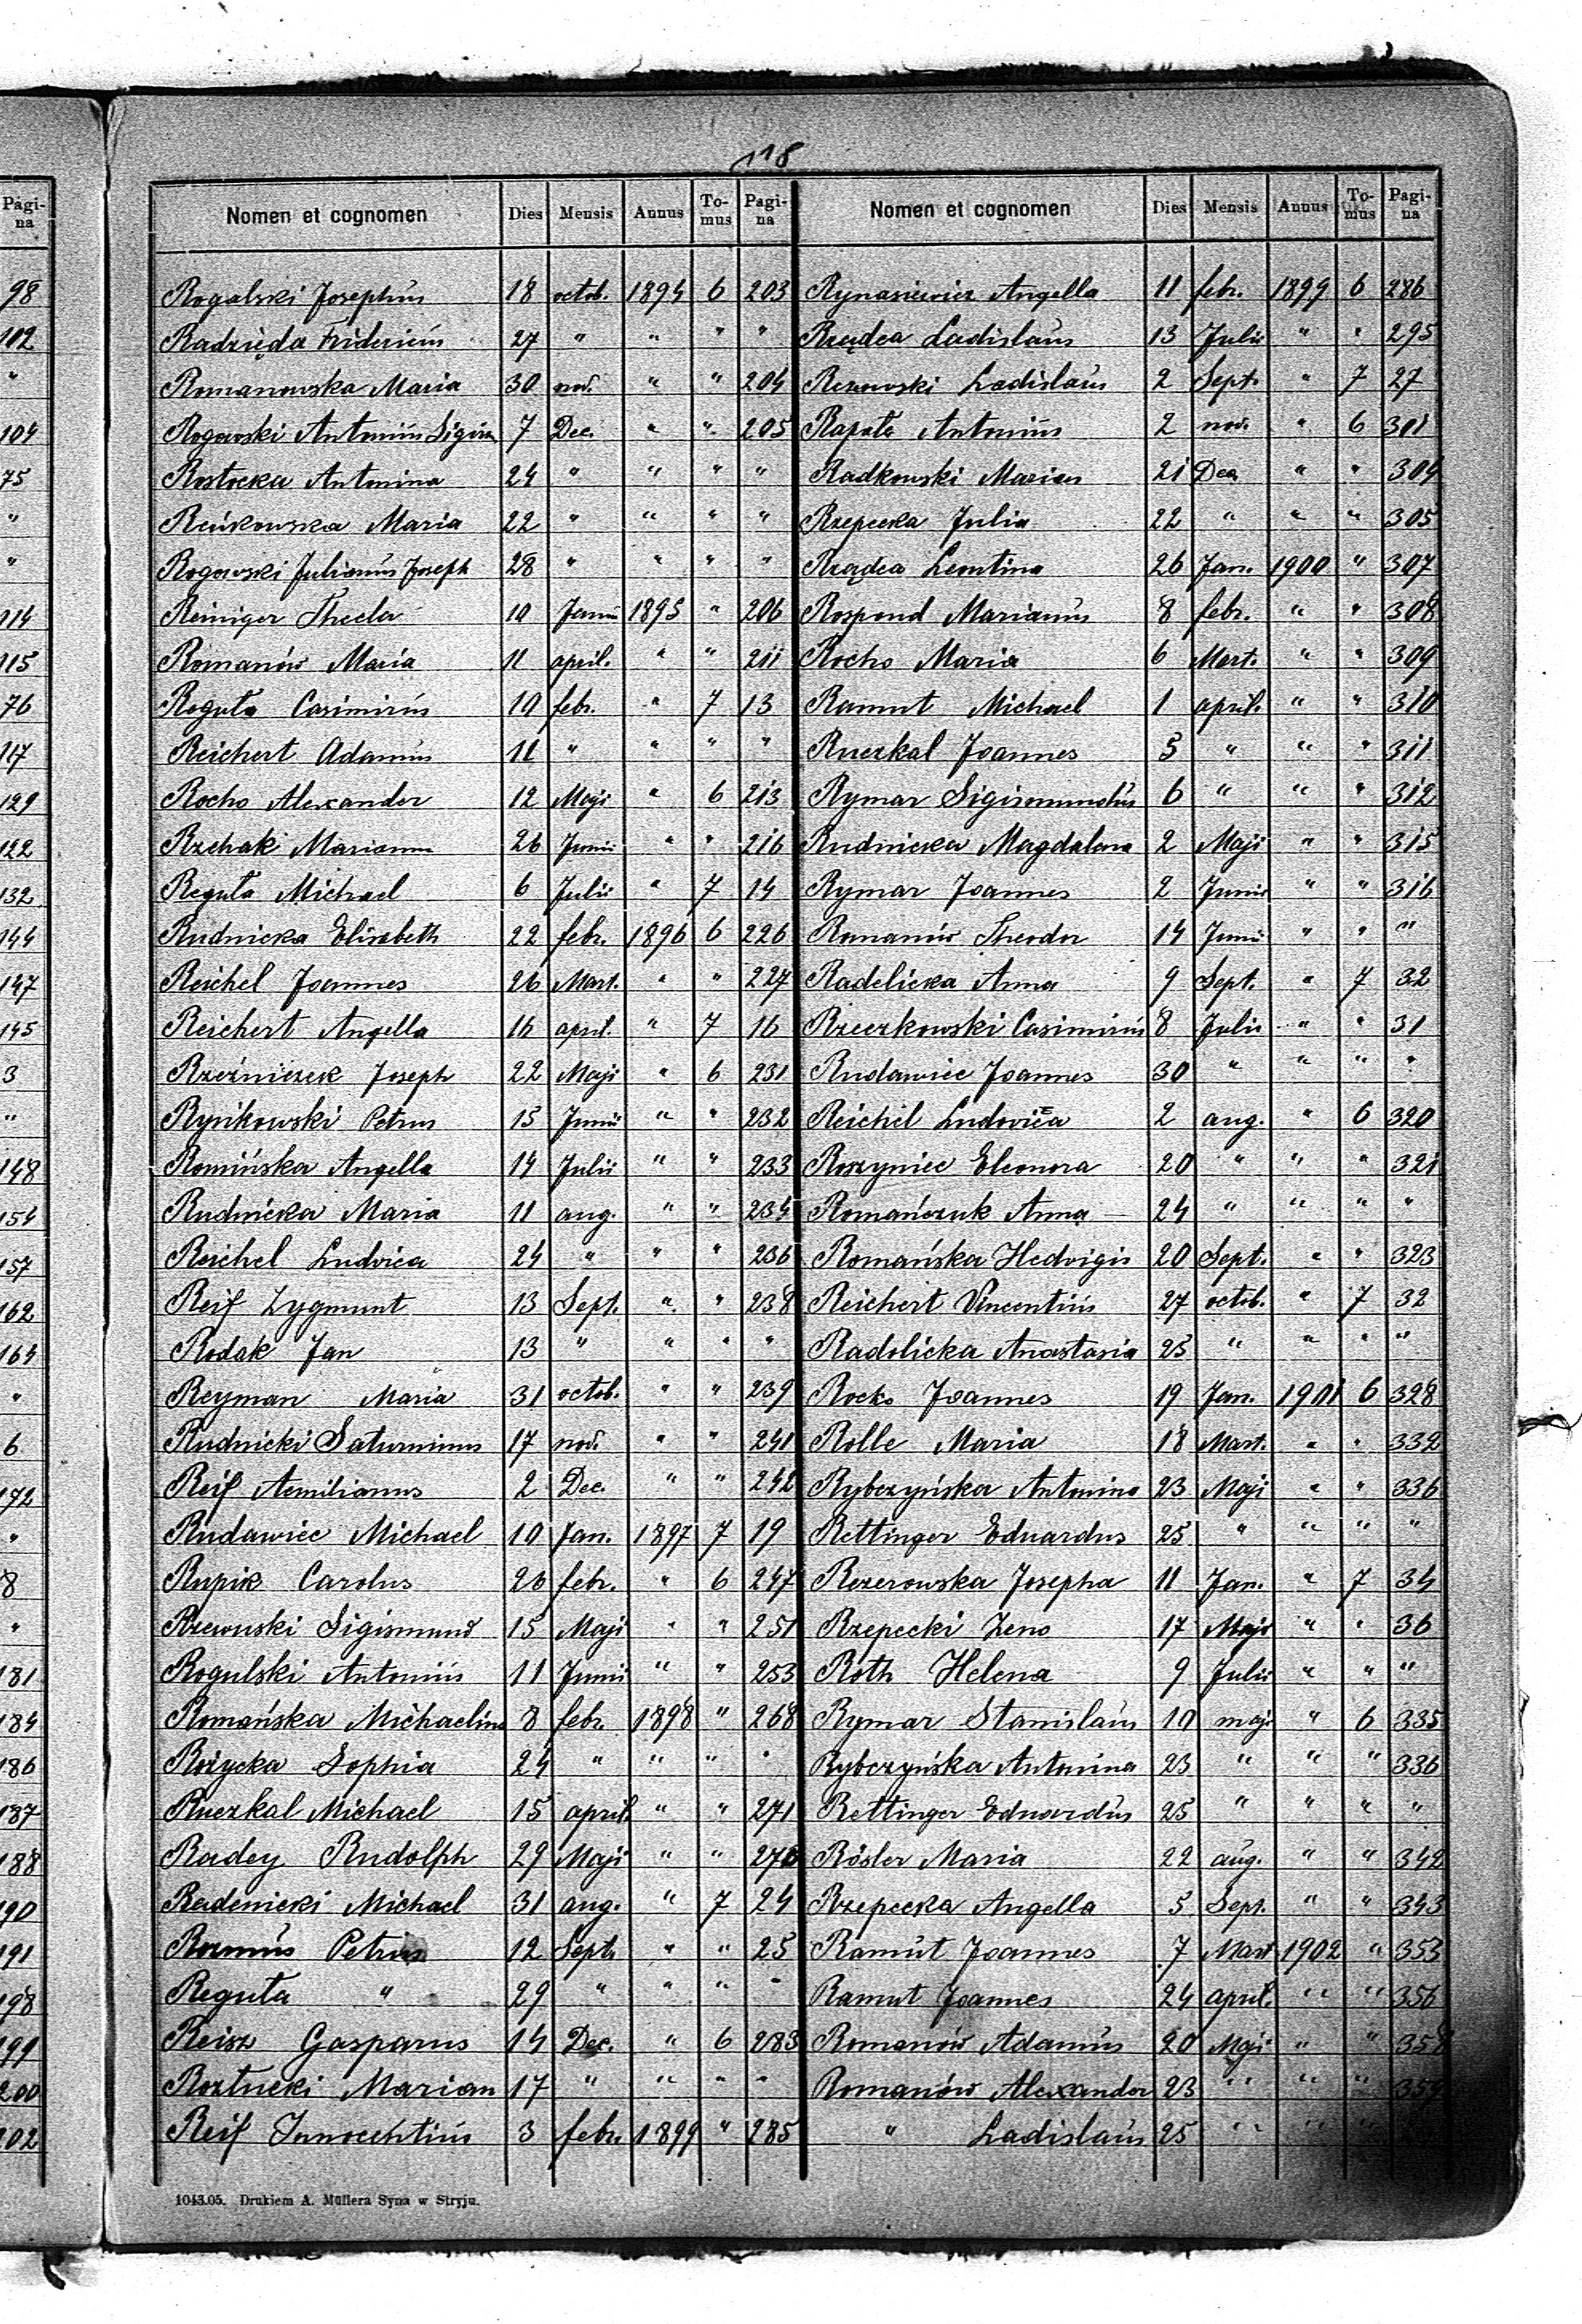 118
Pagina
98
102
"
104
75
"
"
114
115
76
117
129
122
132
144
147
145
3
"
148
154
157
162
164
"
6
172
"
8
"
181
184
186
187
188
190
191
198
199
200
202
Nomen et cognomen Dies Mensis Annus Tomus Pagina
Rogalski Josephus 18 octob. 1894 6 203
Radzięda Fridericus 27 " " " "
Romanowska Maria 30 nov. " " 204
Rogowski Antonius 7 Dec. " " 205
Rostocka Antonina 24 " " " "
Reńkowska Maria 22 " " " "
Rogowski Julianus Joseph 28 " " " "
Reiniger Thecla 10 1895 " 206
Romanów Maria 11 april. " " 211
Roguła Casimirus 19 febr. " 7 13
Reichert Adamus 11 " " " "
Rocho Alexander 12 Maji " 6 213
Rzehak Marianna 26 Junii " " 216
Reguła Michael 6 Julii " 7 14
Rudnicka Elisabeth 22 febr. 1896 6 226
Reichel Joannes 26 Mart. " " 227
Reichert Angella 16 april. " 7 16
Rzeźniczek Joseph 22 Maji " 6 231
Rynkowski Petrus 15 Junii " " 232
Romińska Angella 14 Julii " " 233
Rudnicka Maria 11 aug. " " 234
Reichel Ludvica 24 " " " 236
Reif Zygmunt 13 Sept. " " 238
Rodak Jan 13 " " " "
Reyman Maria 31 octob. " " 239
Rudnicki Saturninus 17 nov. " " 241
Reif Aemilianus 2 Dec. " " 242
Rudawiec Michael 10 Jan. 1897 7 19
Rupik Carolus 26 febr. " 6 247
Rzewuski Sigismund 15 Maji " " 251
Rogulski Antonius 11 Junii " " 253
Romańska Michaelina 8 febr. 1898 " 268
Rożycka Sophia 24 " " " "
Ruczkal Michael 15 april " " 271
Radey Rudolph 29 Maji " "
Radenicki Michael 31 aug. " 7 24
Petrus 12 Sept. " " 25
Reguła " 29 " " " "
Reisz Gasparus 14 Dec. " 6 283
Roztucki Marian 17 " " " "
Reif Innocentius 3 febr. 1899 " 285
Nomen et cognomen Dies Mensis Annus Tomus Pagina
Rynasiewicz Angella 11 febr. 1899 6 286
Rządca Ladislaus 13 Julii " " 295
Ladislaus 2 Sept. " 7 27
Rapała Antonius 2 nov. " 6 301
Radkowski Marian 21 Dec " " 304
Rzepecka Julia 22 " " " 305
Rządca Leontina 26 Jan. 1900 " 307
Rospond Marianus 8 febr. " " 308
Rocho Maria 6 Mart. " " 309
Ramut Michael 1 april. " " 310
Ruczkal Joannes 5 " " " 311
Rymar Sigismundus 6 " " " 312
Rudnicka Magdalena 2 Maji " " 315
Rymar Joannes 2 Junii " " 316
Romanów Theodor 14 Junii " " "
Radelicka Anna 9 Sept. " 7 32
Rzeczkowski Casimirus 8 Julii " " 31
Rudawiec Joannes 30 " " " "
Reichel Ludovica 2 aug. " 6 320
Roszyniec Eleonora 20 " " " 321
Romańczuk Anna 24 " " " "
Romańska Hedvigis 20 Sept. " " 323
Reichert Vincentius 27 octob. " 7 32
Radolicka Anastasia 25 " " " "
Rocko Joannes 19 Jan. 1901 6 328
Rolle Maria 18 Mart. " " 332
Rybczyńska Antonina 23 Maji " " 336
Rettinger Eduardus 25 " " " "
Rezerowska Josepha 11 Jan. " 7 34
Rzepecki Zeno 17 Maji " " 36
Roth Helena 9 Julii " " "
Rymar Stanislaus 10 maji " 6 335
Rybczyńska Antonina 23 " " " 336
Rettinger Eduardus 25 " " " "
Rösler Maria 22 aug. " " 342
Rzepecka Angella 5 Sept. " " 343
Ramut Joannes 7 Mart 1902 " 353
Ramut Joannes 24 april. " " 356
Romanów Adamus 20 Maji " " 358
Romanów Alexander 23 " " " 359
" Ladislaus 25 " " "
1043.05. Drukiem A. Müllera Syna w Stryju.